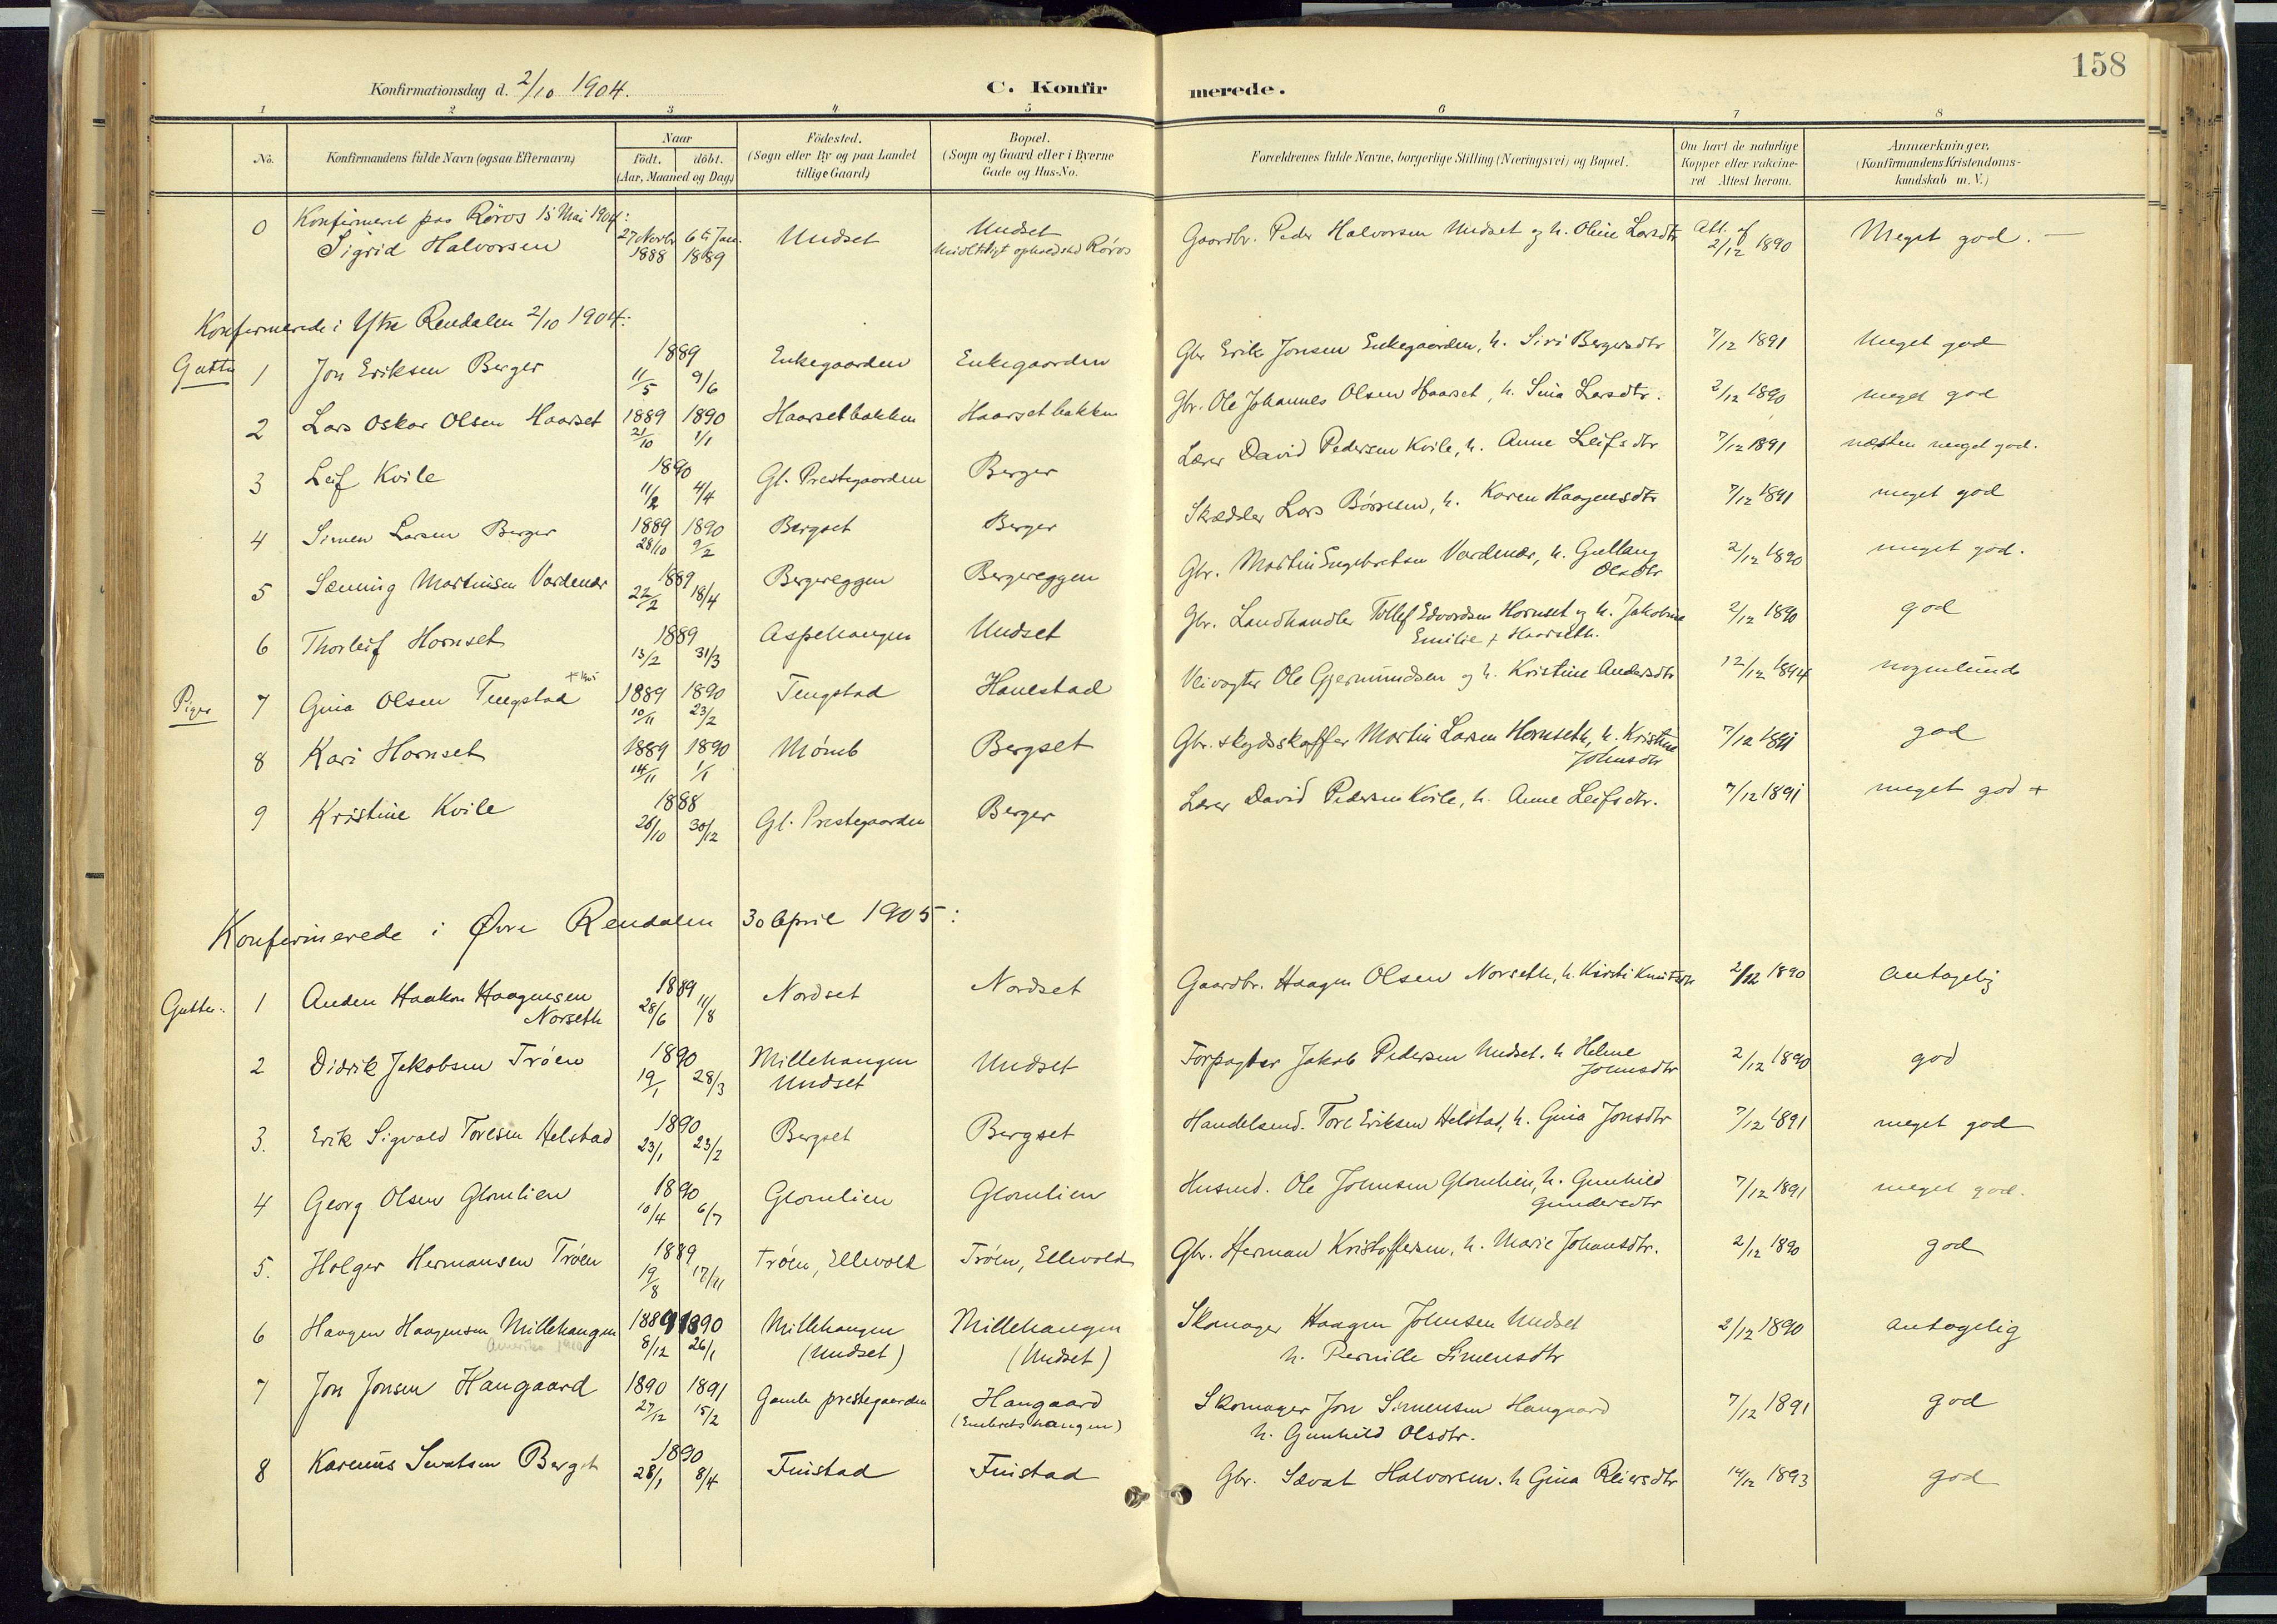 158
Konfirmationsdag d. 2/10 1904.
C. Konfirmerede.
1 2 3 4 5 6 7 8
No. Konfirmandens fulde Navn (ogsaa Efternavn) Naar födt. döbt. (Aar, Maaned og Dag) Födested. (Sogn eller By og paa Landet tillige Gaard) Bopæl. (Sogn og Gaard eller i Byerne Gade og Hus-No. Forældrenes fulde Navne, borgerlige Stilling (Næringsvei) og Bopæl. Om havt de naturlige Kopper eller vakcineret Attest herom. Anmærkninger. (Konfirmandens Kristendomskundskab m.V.)
Konfirmeret paa Røros 15 Mai 1904:
0 Sigrid Halvorsen 27 Novbr 1888 6te Jan. 1889 Undset Undset Midltidigt ophold ved Røros Gaardbr. Peder Halvorsen Undset og h. Oline Larsdtr Att. af 2/12 1890 Meget god. —
Konfirmerede i Ytre Rendalen 2/10 1904:
Gutter 1 Jon Eriksen Berger 1889 11/5 9/6 Enkegaarden Enkegaarden Gbr Erik Jonsen Enkegaarden, h. Siri Bergersdtr 7/12 1891 Meget god
2 Lars Oskar Olsen Haarset 1889 21/10 1890 1/1 Haarsetbakken Haarsetbakken Gbr. Ole Johannes Olsen Haarset, h. Sina Larsdtr. 2/12 1890 meget god
3 Leif Kvile 1890 11/2 4/4 Gl. Prestegaarden Berger Lærer David Pedersen Kvile, h. Anne Leifsdtr 7/12 1891 næsten meget god.
4 Simen Larsen Berger 1889 28/10 1890 9/2 Bergset Berger Skrædder Lars Børresen, h. Karen Haagensdtr 7/12 1891 meget god
5 Sæming Martinsen Vardenær 1889 22/2 18/4 Bergereggen Bergereggen Gbr. Martin Engebretsen Vardenær, h. Gullaug Olsdtr 2/12 1890 meget god.
6 Thorleif Hornset 1889 13/2 31/3 Aspehaugen Undset Gbr. Landhandler Tollef Edvardsen Hornset og h. Jakobine Emilie f Haarseth. 2/12 1890 god
Piger 7 Gina Olsen Tengstad 1889 10/11 1890 23/2 Tengstad Hanestad Veivogter Ole Gjermundsen og h. Kristine Andersdtr 12/12 1894 nogenlunde
8 Kari Hornset 1889 14/11 1890 1/1 Mömb Bergset Gbr. skydsskaffer Martin Larsen Hornseth, h. Kristine Johnsdtr 7/12 1891 god
9 Kristine Kvile 1888 26/10 30/12 Gl. Prestegaarden Berger Lærer David Pedersen Kvile, h. Anne Leifsdtr. 7/12 1891 meget god +
Konfirmerede i Øvre Rendalen 30 April 1905:
Gutter: 1 Anden Haakon Haagensen Norseth 1889 28/6 11/8 Nordset Nordset Gaardbr. Haagen Olsen Norseth, h. Kirsti Knutsdtr 2/12 1890 antagelig
2 Didrik Jakobsen Trøen 1890 19/1 28/3 Millehaugen Undset Undset Forpagter Jakob Pedersen Undset. h Helene Johnsdtr 2/12 1890 god
3. Erik Sigvald Toresen Helstad 1890 23/1 23/2 Bergset Bergset Handelsmd. Tore Eriksen Helstad, h. Gina Jonsdtr 7/12 1891 meget god
4 Georg Olsen Glomlien 1890 10/4 6/7 Glomlien Glomlien Husmd. Ole Johnsen Glomlien, h. Gunhild Gundersdtr 7/12 1891 meget god.
5. Holger Hermansen Trøen 1889 19/8 17/11 Trøen, Ellevold Trøen, Ellevold Gbr. Herman Kristoffersen, h. Marie Johansdtr. 2/12 1890 god
6 Haagen Haagensen Millehaugen Amerika 1910 1889 8/12 1890 26/1 Millehaugen (Undset) Millehaugen (Undset) Skomager Haagen Johnsen Undset h. Pernille Simensdtr 2/12 1890 antagelig
7 Jon Jonsen Haugaard 1890 27/12 1891 15/2 Gamle prestegaarden Haugaard (Embretshaugen) Skomager Jon Simensen Haugaard h. Gunhild Olsdtr. 7/12 1891 god
8 Karenus Sevatsen Berget 1890 28/1 8/4 Finstad Finstad Gbr. Sævat Halvorsen. h Gina Reiersdtr 14/12 1893 god